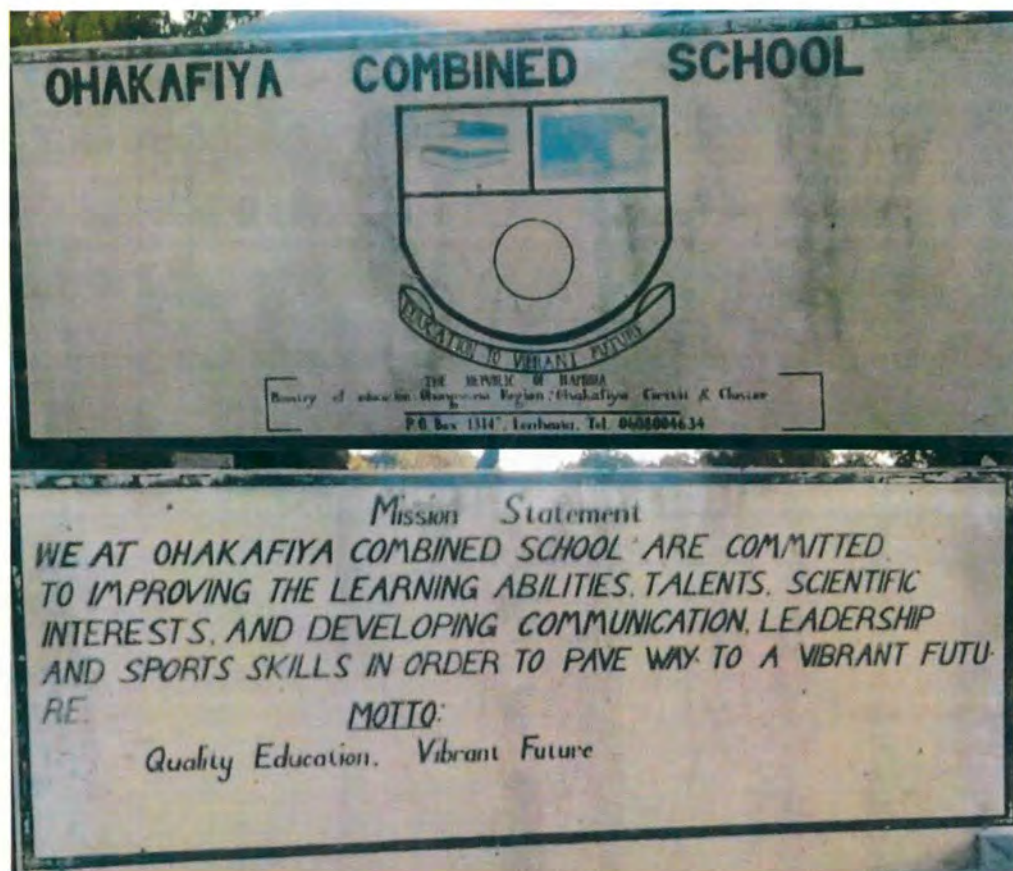 OHAKAFIYA COMBINED SCHOOL
EDUCATION TO VIBRANT FUTURE
THE REPUBLIC OF NAMIBIA
Ministry of education Region Ohakafiya Circuit & Cluster
P.O. Box Tel. 0608004634
Mission Statement
WE AT OHAKAFIYA COMBINED SCHOOL ARE COMMITTED
TO IMPROVING THE LEARNING ABILITIES, TALENTS, SCIENTIFIC
INTERESTS, AND DEVELOPING COMMUNICATION, LEADERSHIP
AND SPORTS SKILLS IN ORDER TO PAVE WAY TO A VIBRANT FUTU-
RE.
MOTTO:
Quality Education, Vibrant Future